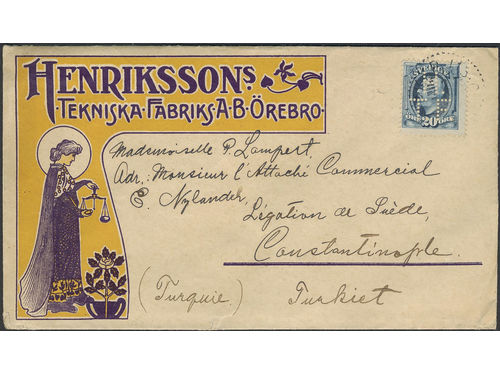 HENRIKSSONS
TEKNISKA·FABRIKS·A-B·ÖREBRO·
SVERIGE
ÖRE 20 ÖRE
Mademoiselle P. Lampert
Adr: Monsieur l'Attaché Commercial
E. Nylander,
Légation de Suède,
Constantinople.
(Turquie)
Turkiet